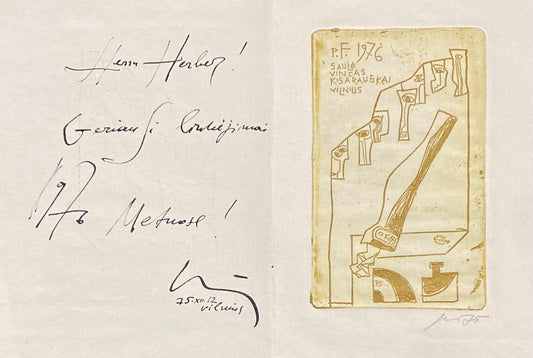 Herrn Herbez!
Geriausi linkėjimai
1976 Metuose!
75.XII.12
Vilnius
P.F. 1976
SAULĖ
VINCAS
KISARAUSKAI
VILNIUS
75
75